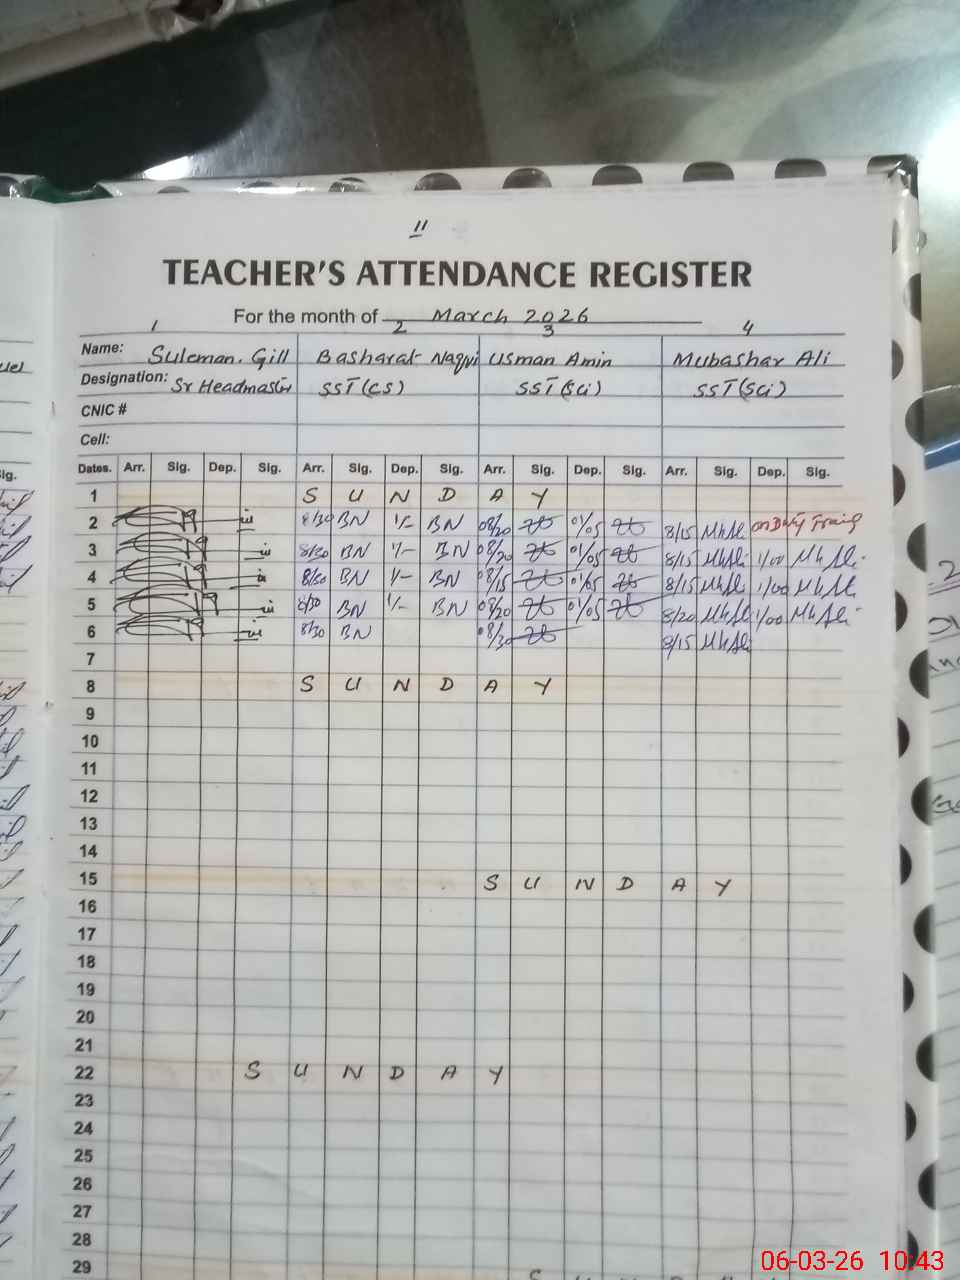 11
TEACHER'S ATTENDANCE REGISTER
For the month of March 2026
1 2 3 4
Name: Suleman. Gill Basharat Naqvi Usman Amin Mubashar Ali
Designation: Sr Headmaster SST (CS) SST (Sci) SST (Sci)
CNIC #
Cell:
Dates. Arr. Sig. Dep. Sig. Arr. Sig. Dep. Sig. Arr. Sig. Dep. Sig. Arr. Sig. Dep. Sig.
1 S U N D A Y
2 8/30 BN 1/- BN 08/20 01/05 8/15 MubAli on Duty
3 8/30 BN 1/- BN 08/20 01/05 8/15 MubAli 1/00 MubAli
4 8/30 BN 1/- BN 08/15 01/05 8/15 MubAli 1/00 MubAli
5 8/30 BN 1/- BN 08/20 01/05 8/20 MubAli 1/00 MubAli
6 8/30 BN 08/30 8/15 MubAli
7
8 S U N D A Y
9
10
11
12
13
14
15 S U N D A Y
16
17
18
19
20
21
22 S U N D A Y
23
24
25
26
27
28
29
06-03-26 10:43